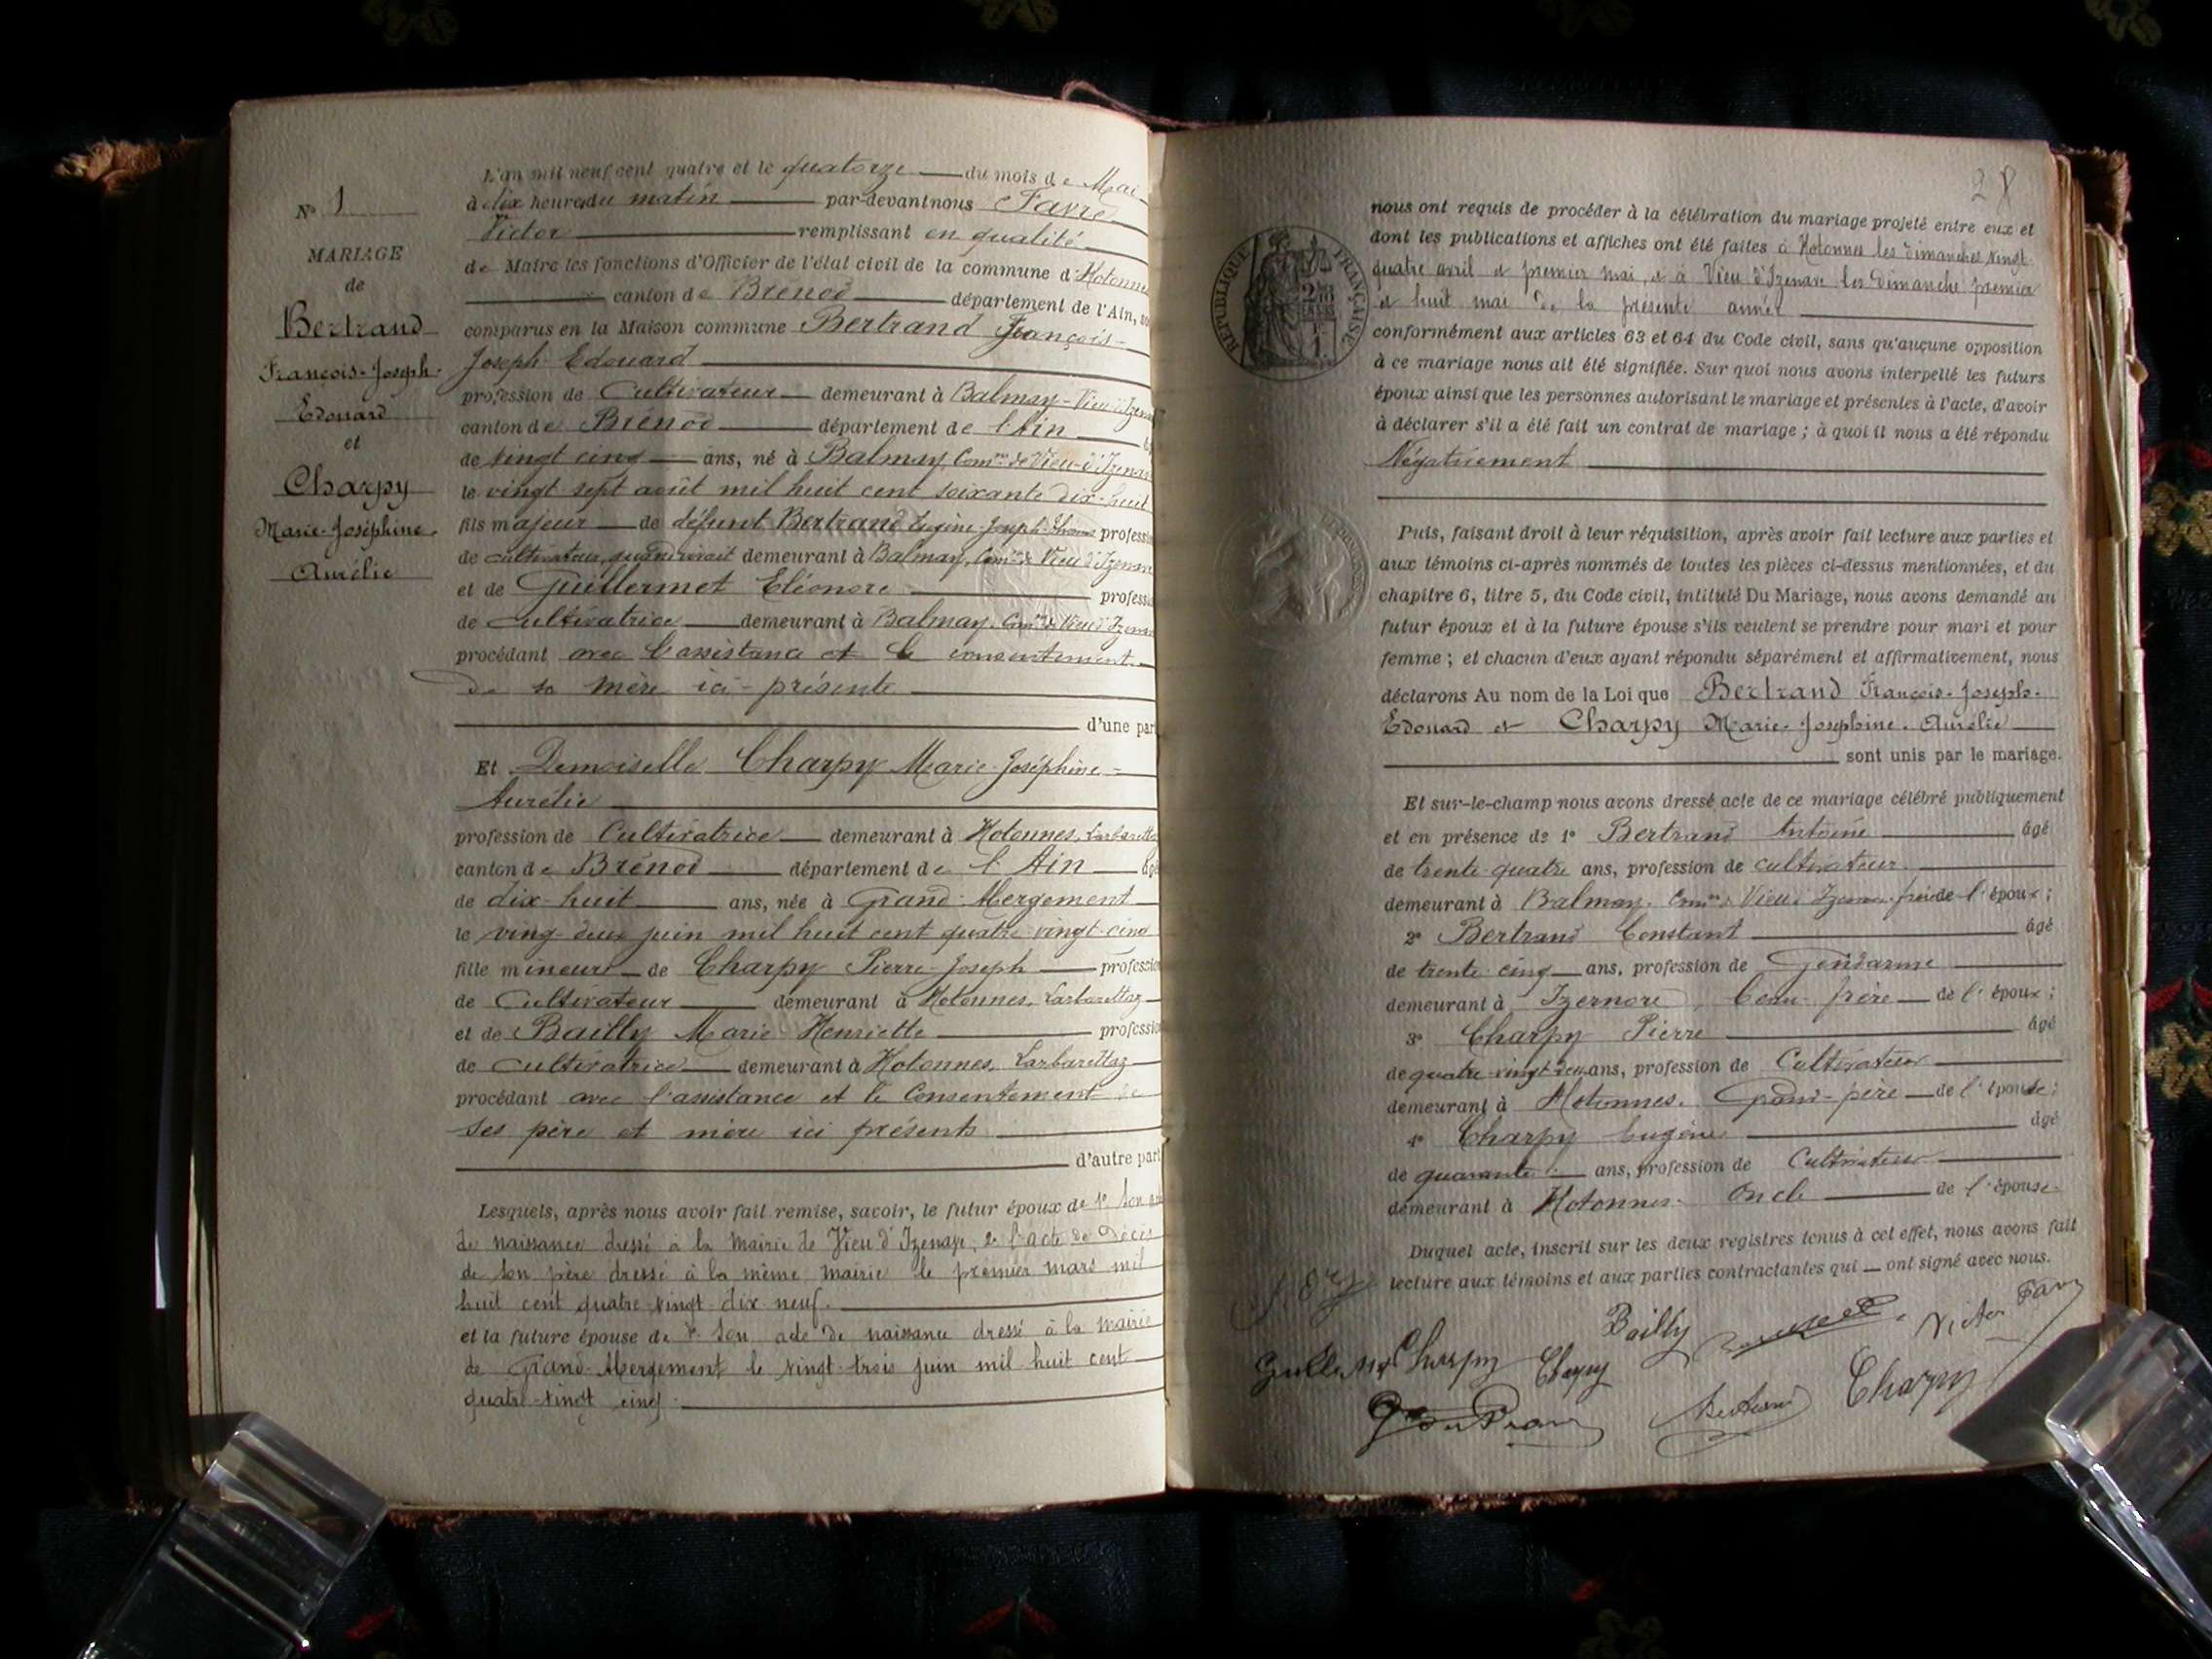 N° 1
MARIAGE
de
Bertrand
François-Joseph-
Edouard
et
Charpy
Marie-Joséphine-
Aurélie
L'an mil neuf cent quatre et le quatorze du mois de Mai
à dix heures du matin par-devant nous Favre
Victor remplissant en qualité
de Maire les fonctions d'Officier de l'état civil de la commune d'Hotonnes
canton de Brénod département de l'Ain,
comparus en la Maison commune Bertrand François-
Joseph-Edouard
profession de Cultivateur demeurant à Balmay-Vieu d'Izenave
canton de Brénod département de l'Ain
de vingt cinq ans, né à Balmay, Comne de Vieu-d'Izenave
le vingt sept août mil huit cent soixante dix-huit
fils majeur de défunt Bertrand Eugène-Joseph-Thomas profession
de cultivateur, quand vivait demeurant à Balmay, Comne de Vieu d'Izenave
et de Guillermet Eléonore profession
de cultivatrice demeurant à Balmay, Comne de Vieu d'Izenave
procédant avec l'assistance et le consentement
de sa mère ici-présente
d'une part
Et Demoiselle Charpy Marie-Joséphine-
Aurélie
profession de Cultivatrice demeurant à Hotonnes, Larbarettaz
canton de Brénod département de l'Ain âgé
de dix-huit ans, née à Grand-Abergement
le ving-deux juin mil huit cent quatre-vingt-cinq
fille mineure de Charpy Pierre-Joseph profession
de Cultivateur demeurant à Hotonnes, Larbarettaz
et de Bailly Marie-Henriette profession
de cultivatrice demeurant à Hotonnes, Larbarettaz
procédant avec l'assistance et le Consentement de
ses père et mère ici présents
d'autre part
Lesquels, après nous avoir fait remise, savoir, le futur époux de 1° son acte
de naissance dressé à la mairie de Vieu d'Izenave, 2° l'acte de décès
de son père dressé à la même mairie le premier mars mil
huit cent quatre-vingt-dix-neuf.
et la future épouse de 1° son acte de naissance dressé à la mairie
de Grand-Abergement le vingt-trois juin mil huit cent
quatre-vingt cinq.
28
RÉPUBLIQUE FRANÇAISE
nous ont requis de procéder à la célébration du mariage projeté entre eux et
dont les publications et affiches ont été faites à Hotonnes les dimanches vingt-
quatre avril et premier mai, et à Vieu d'Izenave les dimanche premier
et huit mai de la présente année
conformément aux articles 63 et 64 du Code civil, sans qu'aucune opposition
à ce mariage nous ait été signifiée. Sur quoi nous avons interpellé les futurs
époux ainsi que les personnes autorisant le mariage et présentes à l'acte, d'avoir
à déclarer s'il a été fait un contrat de mariage ; à quoi il nous a été répondu
Négativement
Puis, faisant droit à leur réquisition, après avoir fait lecture aux parties et
aux témoins ci-après nommés de toutes les pièces ci-dessus mentionnées, et du
chapitre 6, titre 5, du Code civil, intitulé Du Mariage, nous avons demandé au
futur époux et à la future épouse s'ils veulent se prendre pour mari et pour
femme ; et chacun d'eux ayant répondu séparément et affirmativement, nous
déclarons Au nom de la Loi que Bertrand François-Joseph-
Edouard et Charpy Marie-Josephine-Aurélie
sont unis par le mariage.
Et sur-le-champ nous avons dressé acte de ce mariage célébré publiquement
et en présence de 1° Bertrand Antoine âgé
de trente-quatre ans, profession de cultivateur
demeurant à Balmay, Comne de Vieu d'Izenave frère de l'époux ;
2° Bertrand Constant âgé
de trente-cinq ans, profession de Gendarme
demeurant à Izernore, beau-frère de l'époux ;
3° Charpy Pierre âgé
de quatre-vingt-deux ans, profession de Cultivateur
demeurant à Hotonnes. Grand-père de l'épouse ;
4° Charpy Eugène âgé
de quarante ans, profession de Cultivateur
demeurant à Hotonnes. Oncle de l'épouse.
Duquel acte, inscrit sur les deux registres tenus à cet effet, nous avons fait
lecture aux témoins et aux parties contractantes qui ont signé avec nous.
Bailly
Victor Favre
Charpy
Charpy
Charpy
Bertrand